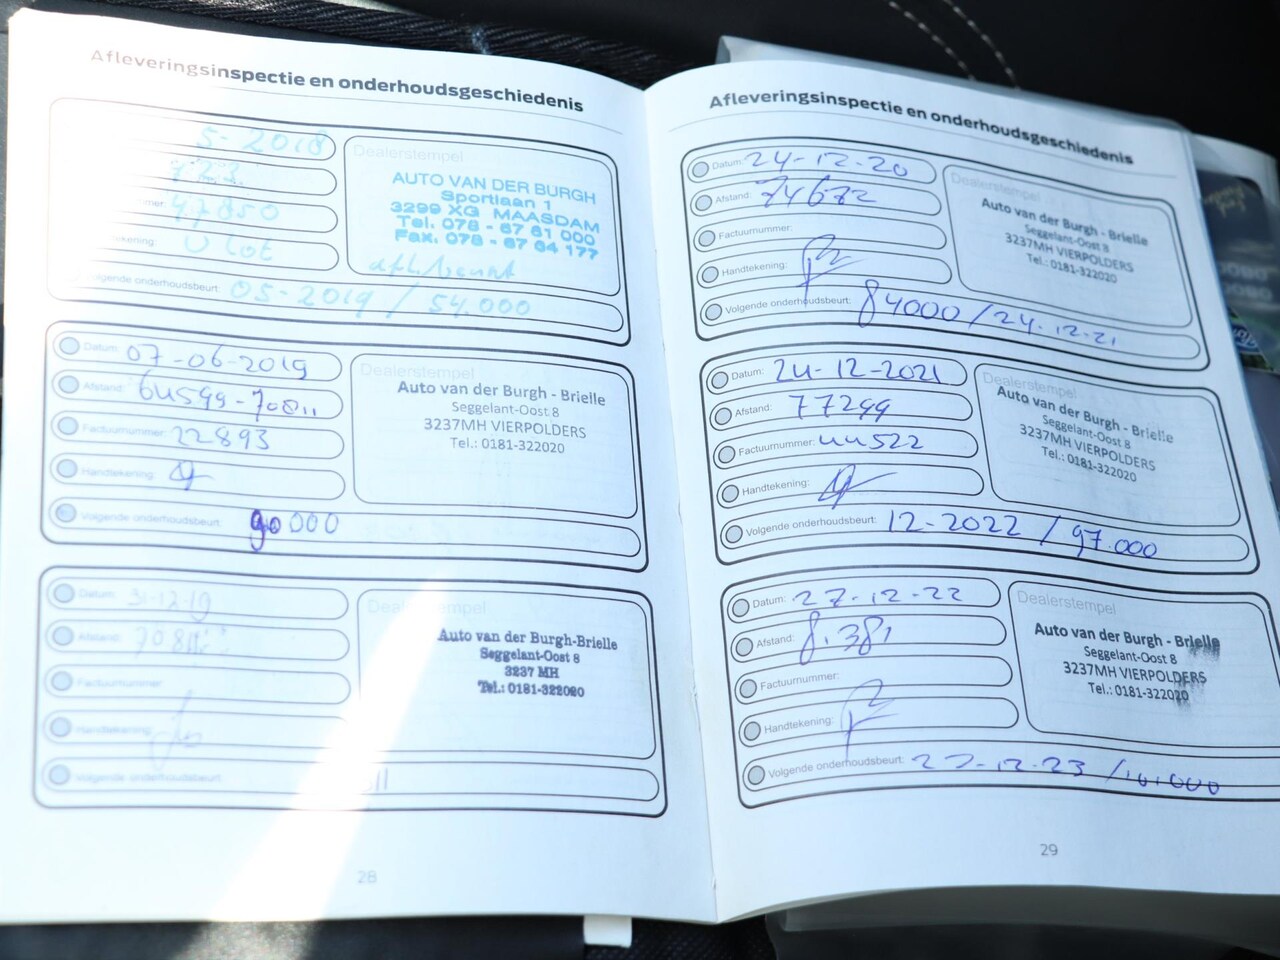 Afleveringsinspectie en onderhoudsgeschiedenis
5-2018
47850
05-2019 / 54.000
Dealerstempel
AUTO VAN DER BURGH
Sportlaan 1
3299 XG MAASDAM
Tel. 078 - 67 61 000
Fax. 078 - 67 64 177
Datum: 07-06-2019
Afstand:
Factuurnummer: 22893
Handtekening:
Volgende onderhoudsbeurt: 90000
Dealerstempel
Auto van der Burgh - Brielle
Seggelant-Oost 8
3237MH VIERPOLDERS
Tel.: 0181-322020
Datum: 31-12-19
Afstand:
Factuurnummer:
Handtekening:
Volgende onderhoudsbeurt:
Dealerstempel
Auto van der Burgh-Brielle
Seggelant-Oost 8
3237 MH
Tel.: 0181-322020
28
Afleveringsinspectie en onderhoudsgeschiedenis
Datum: 24-12-20
Afstand: 74672
Factuurnummer:
Handtekening:
Volgende onderhoudsbeurt: 84000/24-12-21
Dealerstempel
Auto van der Burgh - Brielle
Seggelant-Oost 8
3237MH VIERPOLDERS
Tel.: 0181-322020
Datum: 24-12-2021
Afstand: 77299
Factuurnummer: 44522
Handtekening:
Volgende onderhoudsbeurt: 12-2022 / 97.000
Dealerstempel
Auto van der Burgh - Brielle
Seggelant-Oost 8
3237MH VIERPOLDERS
Tel.: 0181-322020
Datum: 27-12-22
Afstand: 81381
Factuurnummer:
Handtekening:
Volgende onderhoudsbeurt: 27-12-23 /101.000
Dealerstempel
Auto van der Burgh - Brielle
Seggelant-Oost 8
3237MH VIERPOLDERS
Tel.: 0181-322020
29